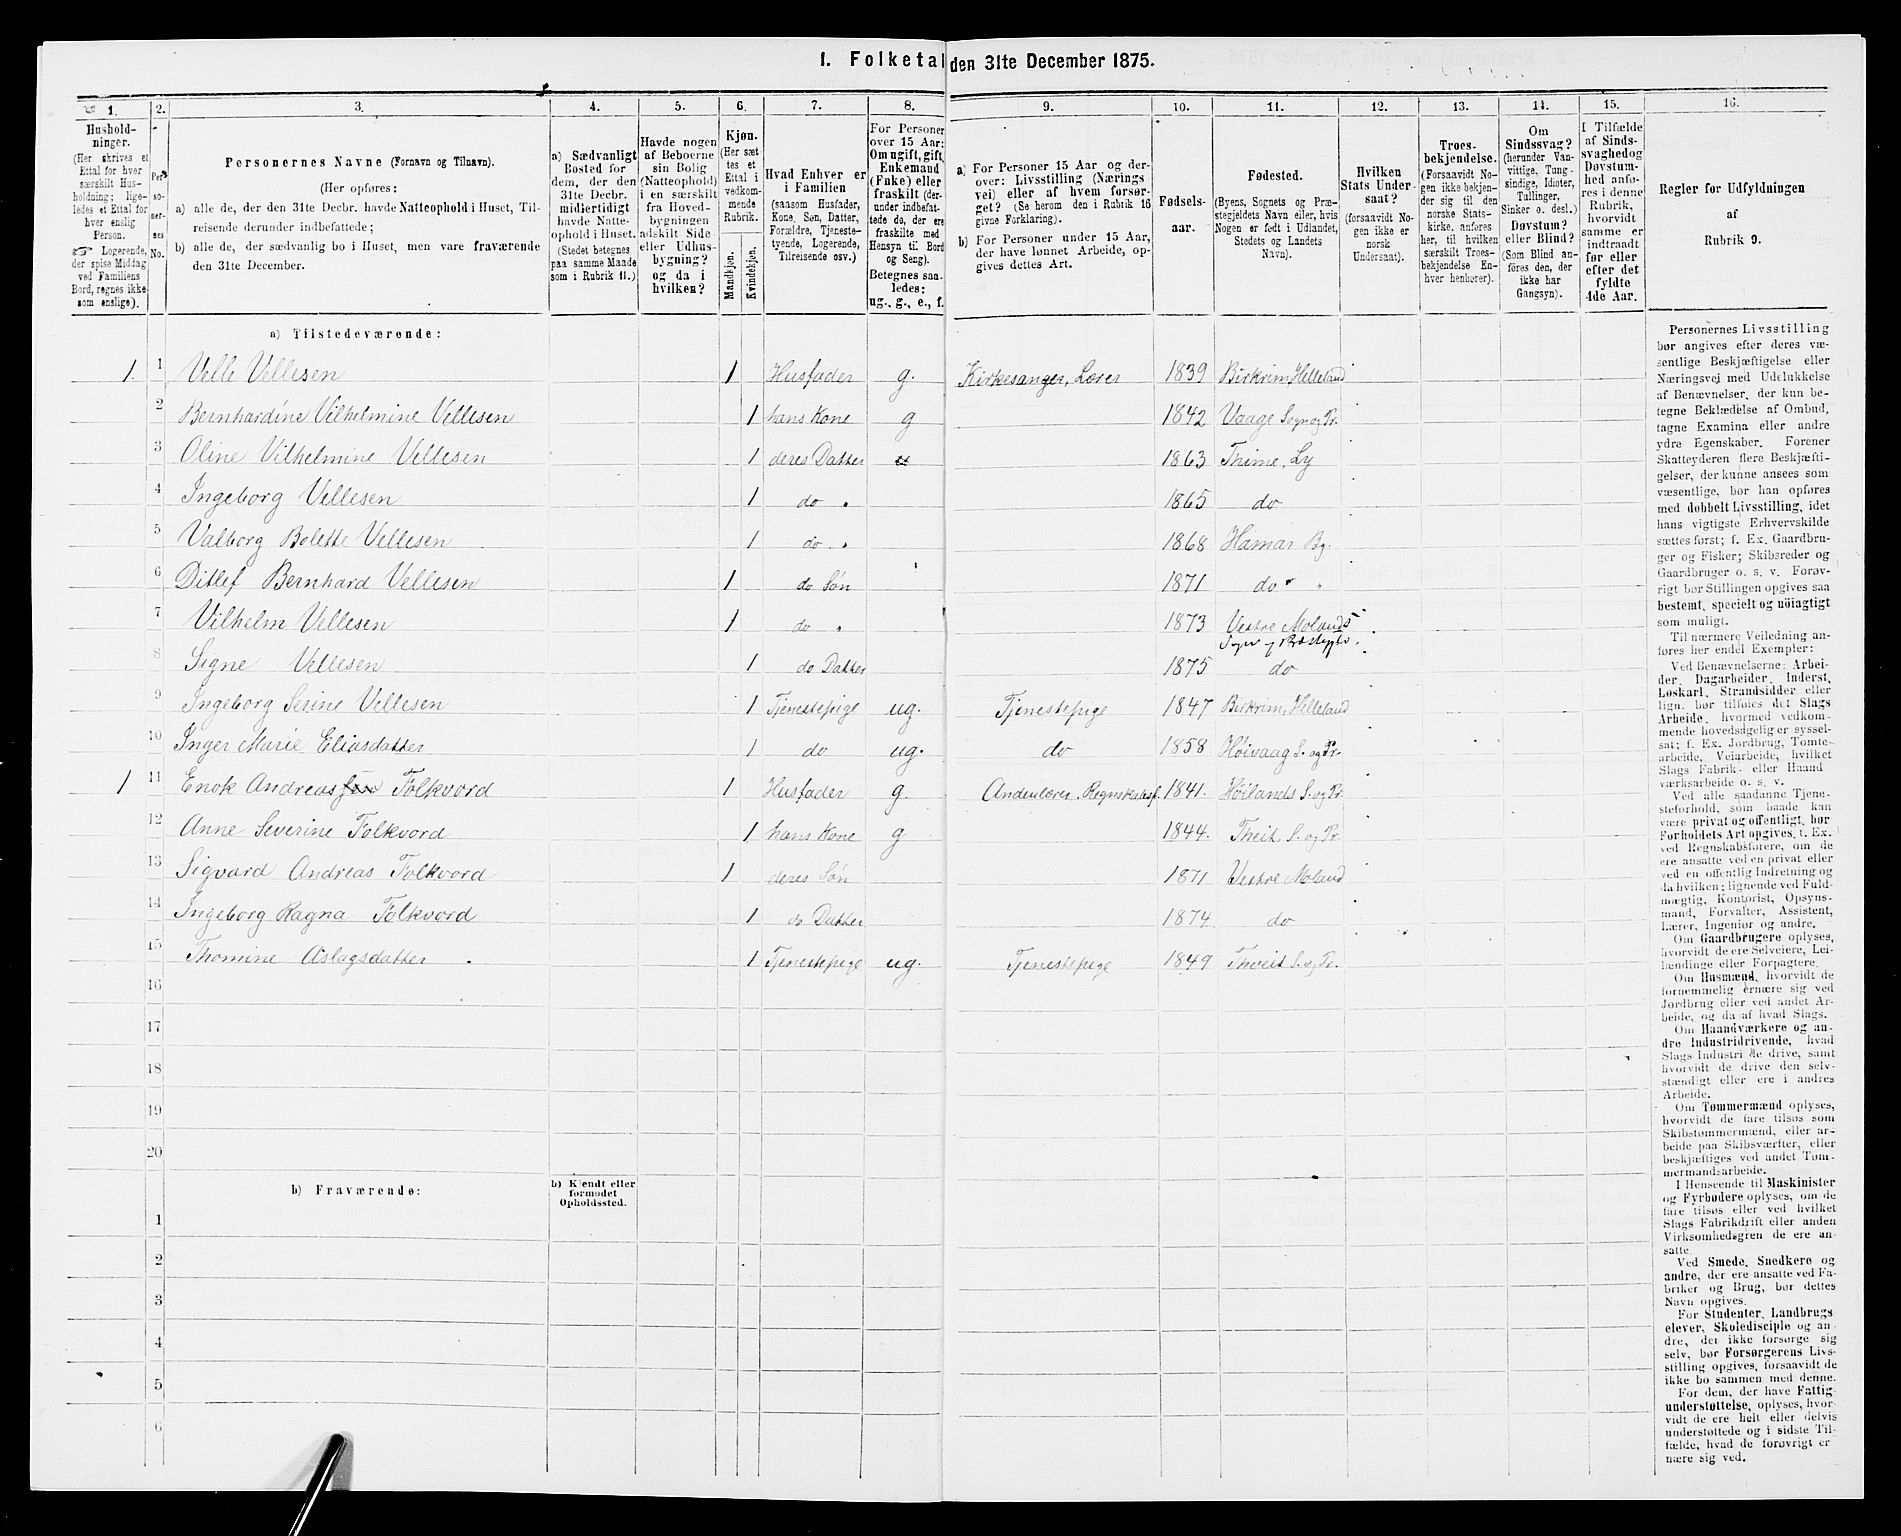 1. Folketal den 31te December 1875.
1. 2. 3. 4. 5. 6. 7. 8. 9. 10. 11. 12. 13. 14. 15. 16.
Hushold-
ninger.
(Her skrives et
Ettal for hver
særskilt Hus-
holdning; lige-
ledes et Ettal for
hver enslig
Person.
☞ Logerende,
der spise Middag
ved Familiens
Bord, regnes ikke
som enslige).
Per-
so-
ner-
nes
No.
Personernes Navne (Fornavn og Tilnavn).
(Her opføres:
a) alle de, der den 31te Decbr. havde Natteophold i Huset, Til-
reisende derunder indbefattede;
b) alle de, der sædvanlig bo i Huset, men vare fraværende
den 31te December.
a) Sædvanligt
Bosted for
dem, der den
31te Decbr.
midlertidigt
havde Natte-
ophold i Huset.
(Stedet betegnes
paa samme Maade
som i Rubrik 11.)
Havde nogen
af Beboerne
sin Bolig
(Natteophold)
i en særskilt
fra Hoved-
bygningen
adskilt Side-
eller Udhus-
bygning?
og da i
hvilken?
Kjøn.
(Her sæt-
tes et
Ettal i
vedkom-
mende
Rubrik.
Mandkjøn.
Kvindekjøn.
Hvad Enhver er
i Familien
(saasom Husfader,
Kone, Søn, Datter,
Forældre, Tjeneste-
tyende, Logerende,
Tilreisende osv.)
For Personer
over 15 Aar:
Om ugift, gift,
Enkemand
(Enke) eller
fraskilt (der-
under indbefat-
tede de, der ere
fraskilte med
Hensyn til Bord
og Seng).
Betegnes saa-
ledes:
ug., g., e., f.
a) For Personer 15 Aar og der-
over: Livsstilling (Nærings-
vei) eller af hvem forsør-
get? (Se herom den i Rubrik 16
givne Forklaring).
b) For Personer under 15 Aar,
der have lønnet Arbeide, op-
gives dettes Art.
Fødsels-
aar.
Fødested.
(Byens, Sognets og Præ-
stegjeldets Navn eller, hvis
Nogen er født i Udlandet,
Stedets og Landets
Navn).
Hvilken
Stats Under-
saat?
(forsaavidt No-
gen ikke er
norsk
Undersaat).
Troes-
bekjendelse.
(Forsaavidt No-
gen ikke bekjen-
der sig til den
norske Stats-
kirke, anføres
her, til hvilken
særskilt Troes-
bekjendelse En-
hver henhører).
Om
Sindssvag?
(herunder Van-
vittige, Tung-
sindige, Idioter,
Tullinger,
Sinker o. desl.)
Døvstum?
eller Blind?
(Som Blind an-
føres den, der
ikke har
Gangsyn).
I Tilfælde
af Sinds-
svaghed og
Døvstum-
hed anfø-
res i denne
Rubrik,
hvorvidt
samme er
indtraadt
før eller
efter det
fyldte
4de Aar.
Regler for Udfyldningen
af
Rubrik 9.
a) Tilstedeværende:
1. 1 Velle Vellesen 1 Husfader g. Kirkesanger, Lærer 1839 Birkrim, Helleland
2 Bernhardine Vilhelmine Vellesen 1 hans Kone g 1842 Vaage Sogn og Pr.
3 Oline Vilhelmine Vellesen 1 deres Datter 1863 Thime, Ly
4 Ingeborg Vellesen 1 do " 1865 do
5 Valborg Bolette Vellesen 1 do " 1868 Hamar By.
6 Ditlef Bernhard Vellesen 1 do Søn 1871 do "
7 Vilhelm Vellesen 1 do " 1873 Vestre Molands
Sogn og Præstegjeld.
8 Signe Vellesen 1 do Datter 1875 do
9 Ingeborg Serine Vellesen 1 Tjenestepige ug. Tjenestepige 1847 Birkrim, Helleland
10 Inger Marie Eliasdatter 1 do ug. do 1858 Høivaag S. og Pr.
1 11 Enok Andreassen Folkvord 1 Husfader g. Andenlærer, Regnskabsf. 1841. Høilands S. og Pr
12 Anne Severine Folkvord 1 hans Kone g 1844. Theit, S. og Pr
13 Sigvard Andreas Folkvord 1 deres Søn 1871 Vestre Moland
14 Ingeborg Ragna Folkvord 1 do Datter 1874 do
15 Thomine Aslagsdatter 1 Tjenestepige ug. Tjenestepige 1849 Thveit S. og Pr.
16
17
18
19
20
b) Fraværende:
b) Kjendt eller
formodet
Opholdssted.
1
2
3
4
5
6
Personernes Livsstilling
bør angives efter deres væ-
sentlige Beskjæftigelse eller
Næringsvei med Udelukkelse
af Benævnelser, der kun be-
tegne Beklædelse af Ombud,
tagne Examina eller andre
ydre Egenskaber. Forener
Skatteyderen flere Beskjæfti-
gelser, der kunne ansees som
væsentlige, bør han opføres
med dobbelt Livsstilling, idet
hans vigtigste Erhvervskilde
sættes først; f. Ex. Gaardbru-
ger og Fisker; Skibsreder og
Gaardbruger o. s. v. Forøv-
rigt bør Stillingen opgives saa
bestemt, specielt og nøiagtigt
som muligt.
Til nærmere Veiledning an-
føres her endel Exempler:
Ved Benævnelserne: Arbei-
der, Dagarbeider, Inderst,
Løskarl, Strandsidder eller
lign. bør tilføies det Slags
Arbeide, hvormed vedkom-
mende hovedsagelig er syssel-
sat; f. Ex. Jordbrug, Tomte-
arbeide, Veiarbeide, hvilket
Slags Fabrik- eller Haand-
værksarbeide o. s. v.
Ved alle saadanne Tjene-
steforhold, som baade kan
være privat og offentligt, bør
Forholdets Art opgives, t. Ex.
ved Regnskabsførere, om de
ere ansatte ved en privat eller
ved en offentlig Indretning og
da hvilken; lignende ved Fuld-
mægtig, Kontorist, Opsyns-
mand, Forvalter, Assistent,
Lærer, Ingeniør og andre.
Om Gaardbrugere oplyses,
hvorvidt de ere Selveiere, Lei-
lændinge eller Forpagtere.
Om Husmænd, hvorvidt de
fornemmelig ernære sig ved
Jordbrug eller ved andet Ar-
beide, og da af hvad Slags.
Om Haandværkere og an-
dre Industridrivende, hvad
Slags Industri de drive, samt
hvorvidt de drive den selv-
stændigt eller ere i andres
Arbeide.
Om Tømmermænd oplyses,
hvorvidt de fare tilsøs som
Skibstømmermænd, eller ar-
beide paa Skibsværfter, eller
beskjæftiges ved andet Tøm-
mermandsarbeide.
I Henseende til Maskinister
og Fyrbødere oplyses, om de
fare tilsøs eller ved hvilket
Slags Fabrikdrift eller anden
Virksomhedsgren de ere an-
satte.
Ved Smede, Snedkere og
andre, der ere ansatte ved Fa-
briker og Brug, bør dettes
Navn opgives.
For Studenter, Landbrugs-
elever, Skoledisciple og an-
dre, der ikke forsørge sig
selv, bør Forsørgerens Livs-
stilling opgives, forsaavidt de
ikke bo sammen med denne.
For dem, der have Fattig-
understøttelse, oplyses, hvor-
vidt de ere helt eller delvis
understøttede og i sidste Til-
fælde, hvad de forøvrigt er-
nære sig ved.